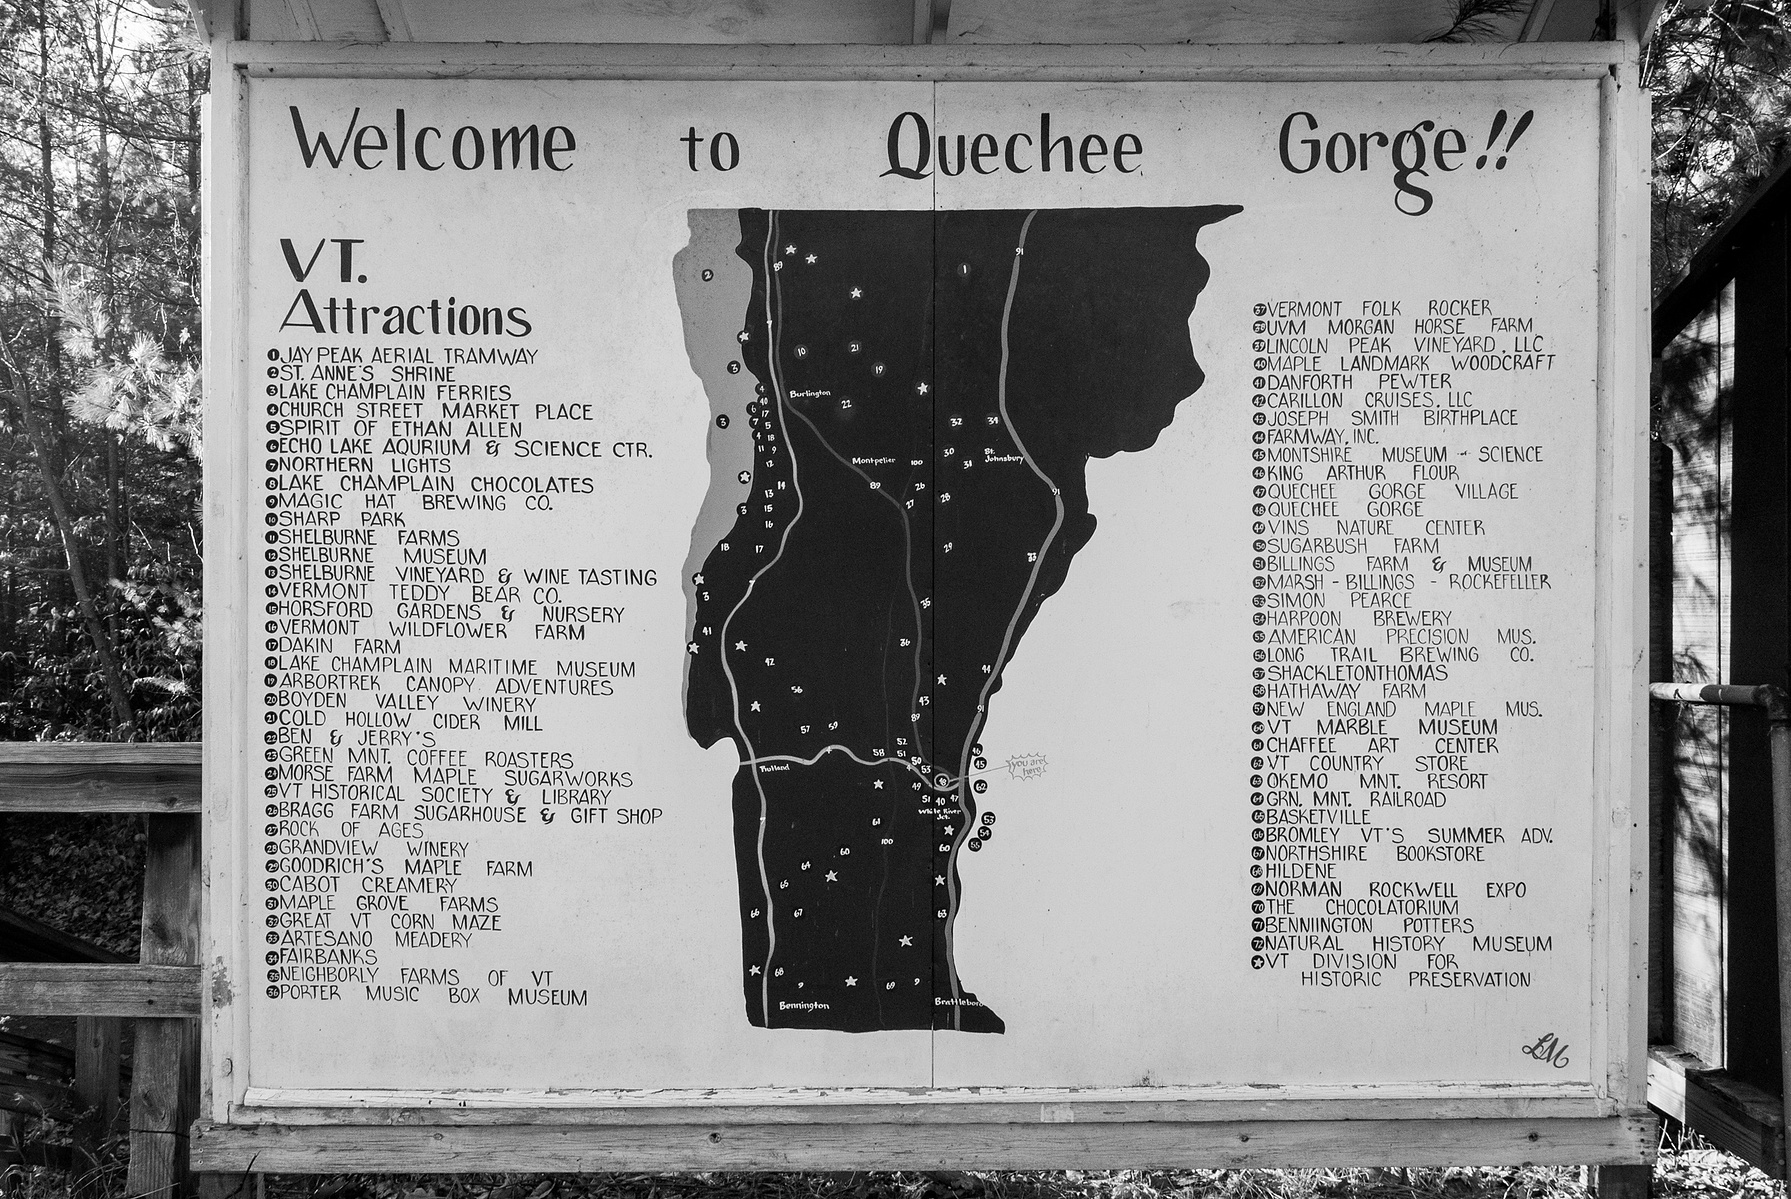 Welcome to Quechee Gorge!!
VT.
Attractions
1 JAY PEAK AERIAL TRAMWAY
2 ST. ANNE'S SHRINE
3 LAKE CHAMPLAIN FERRIES
4 CHURCH STREET MARKET PLACE
5 SPIRIT OF ETHAN ALLEN
6 ECHO LAKE AQURIUM & SCIENCE CTR.
7 NORTHERN LIGHTS
8 LAKE CHAMPLAIN CHOCOLATES
9 MAGIC HAT BREWING CO.
10 SHARP PARK
11 SHELBURNE FARMS
12 SHELBURNE MUSEUM
13 SHELBURNE VINEYARD & WINE TASTING
14 VERMONT TEDDY BEAR CO.
15 HORSFORD GARDENS & NURSERY
16 VERMONT WILDFLOWER FARM
17 DAKIN FARM
18 LAKE CHAMPLAIN MARITIME MUSEUM
19 ARBORTREK CANOPY ADVENTURES
20 BOYDEN VALLEY WINERY
21 COLD HOLLOW CIDER MILL
22 BEN & JERRY'S
23 GREEN MNT. COFFEE ROASTERS
24 MORSE FARM MAPLE SUGARWORKS
25 VT HISTORICAL SOCIETY & LIBRARY
26 BRAGG FARM SUGARHOUSE & GIFT SHOP
27 ROCK OF AGES
28 GRANDVIEW WINERY
29 GOODRICH'S MAPLE FARM
30 CABOT CREAMERY
31 MAPLE GROVE FARMS
32 GREAT VT CORN MAZE
33 ARTESANO MEADERY
34 FAIRBANKS
35 NEIGHBORLY FARMS OF VT
36 PORTER MUSIC BOX MUSEUM
Burlington
Montpelier
St.
Johnsbury
Rutland
you are
here
White River
Jct.
Bennington
Brattleboro
37 VERMONT FOLK ROCKER
38 UVM MORGAN HORSE FARM
39 LINCOLN PEAK VINEYARD, LLC
40 MAPLE LANDMARK WOODCRAFT
41 DANFORTH PEWTER
42 CARILLON CRUISES, LLC
43 JOSEPH SMITH BIRTHPLACE
44 FARMWAY, INC.
45 MONTSHIRE MUSEUM - SCIENCE
46 KING ARTHUR FLOUR
47 QUECHEE GORGE VILLAGE
48 QUECHEE GORGE
49 VINS NATURE CENTER
50 SUGARBUSH FARM
51 BILLINGS FARM & MUSEUM
52 MARSH - BILLINGS - ROCKEFELLER
53 SIMON PEARCE
54 HARPOON BREWERY
55 AMERICAN PRECISION MUS.
56 LONG TRAIL BREWING CO.
57 SHACKLETONTHOMAS
58 HATHAWAY FARM
59 NEW ENGLAND MAPLE MUS.
60 VT MARBLE MUSEUM
61 CHAFFEE ART CENTER
62 VT COUNTRY STORE
63 OKEMO MNT. RESORT
64 GRN. MNT. RAILROAD
65 BASKETVILLE
66 BROMLEY VT'S SUMMER ADV.
67 NORTHSHIRE BOOKSTORE
68 HILDENE
69 NORMAN ROCKWELL EXPO
70 THE CHOCOLATORIUM
71 BENNIINGTON POTTERS
72 NATURAL HISTORY MUSEUM
★ VT DIVISION FOR
HISTORIC PRESERVATION
LM